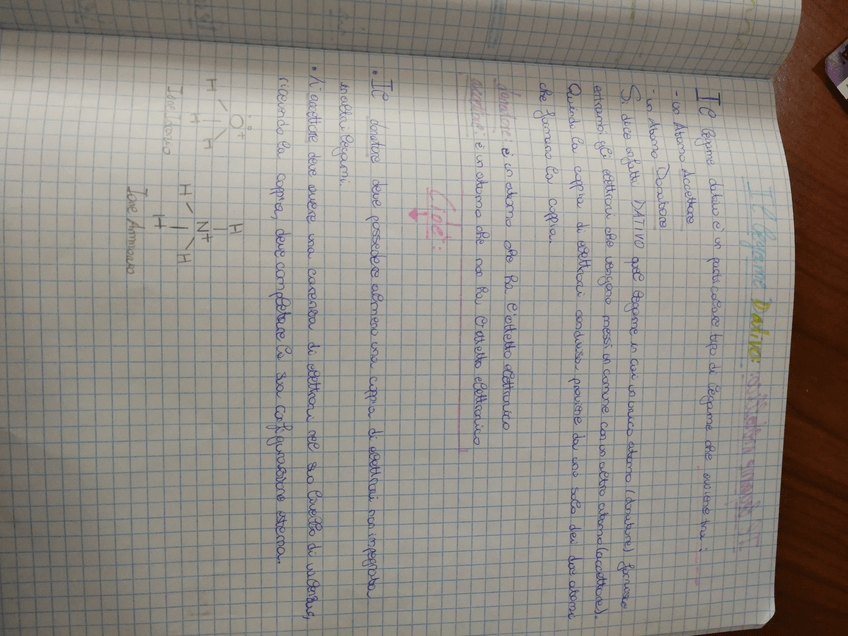 Il legame Dativo:
Il legame dativo è un particolare tipo di legame che avviene tra:
- un Atomo Accettore
- un Atomo Donatore
Si dice infatti DATIVO quel legame in cui un unico atomo (donatore) fornisce
entrambi gli elettroni che vengono messi in comune con un altro atomo (accettore).
Quindi la coppia di elettroni condivisa proviene da uno solo dei due atomi
che formano la coppia.
donatore: è un atomo che ha l'ottetto elettronico
accettore: è un atomo che non ha l'ottetto elettronico
Cioè:
• Il donatore deve possedere almeno una coppia di elettroni non impegnata
in altri legami.
• L'accettore deve avere una carenza di elettroni nel suo livello di valenza,
ricevendo la coppia, deve completare la sua configurazione esterna.
H
O+
H
H
H
H
N+
H
H
Ione Ammonio